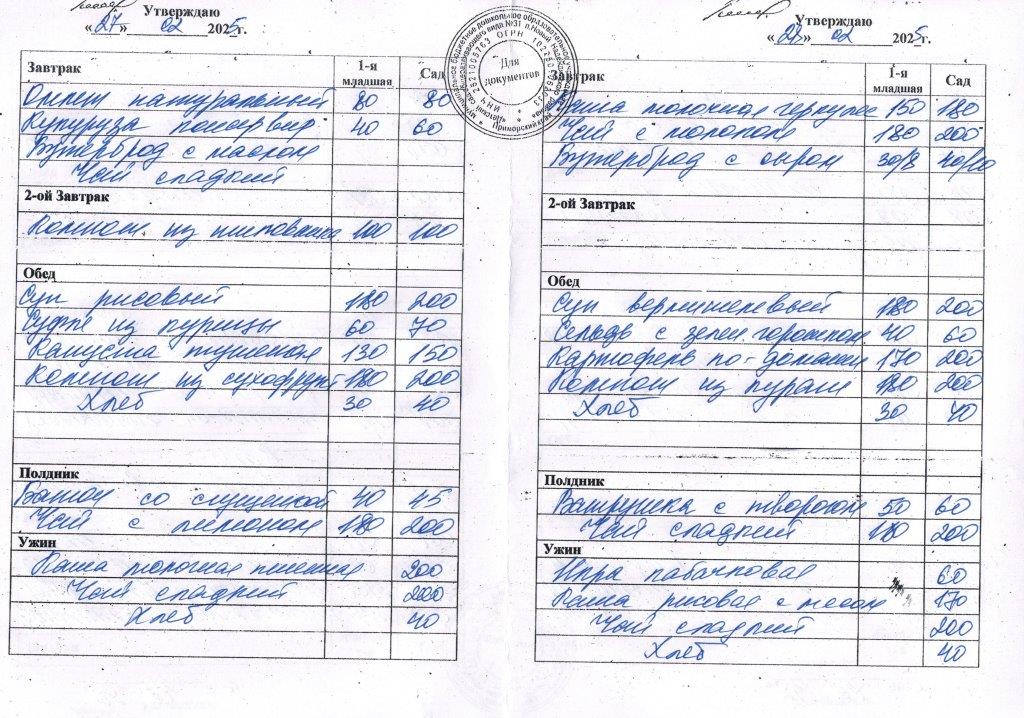 Утверждаю
«27» 02 2025г.
Завтрак 1-я младшая Сад
Омлет натуральный 80 80
Кукуруза консервир 40 60
Бутерброд с маслом
Чай сладкий
2-ой Завтрак
Компот из шиповника 100 100
Обед
Суп рисовый 180 200
Суфле из курицы 60 70
Капуста тушеная 130 150
Компот из сухофрукт 180 200
Хлеб 30 40
Полдник
Батон со сгущенкой 40 45
Чай с лимоном 180 200
Ужин
Каша молочная пшенная 200
Чай сладкий 200
Хлеб 40
Для документов
Утверждаю
«28» 02 2025г.
Завтрак 1-я младшая Сад
Каша молочная геркулес 150 180
Чай с молоком 180 200
Бутерброд с сыром 30/8 40/10
2-ой Завтрак
Обед
Суп вермишелевый 180 200
Сельдь с зелен. горошком 40 60
Картофель по-домашн 170 200
Компот из кураги 180 200
Хлеб 30 40
Полдник
Ватрушка с творогом 50 60
Чай сладкий 180 200
Ужин
Икра кабачковая 60
Каша рисовая с мясом 170
Чай сладкий 200
Хлеб 40